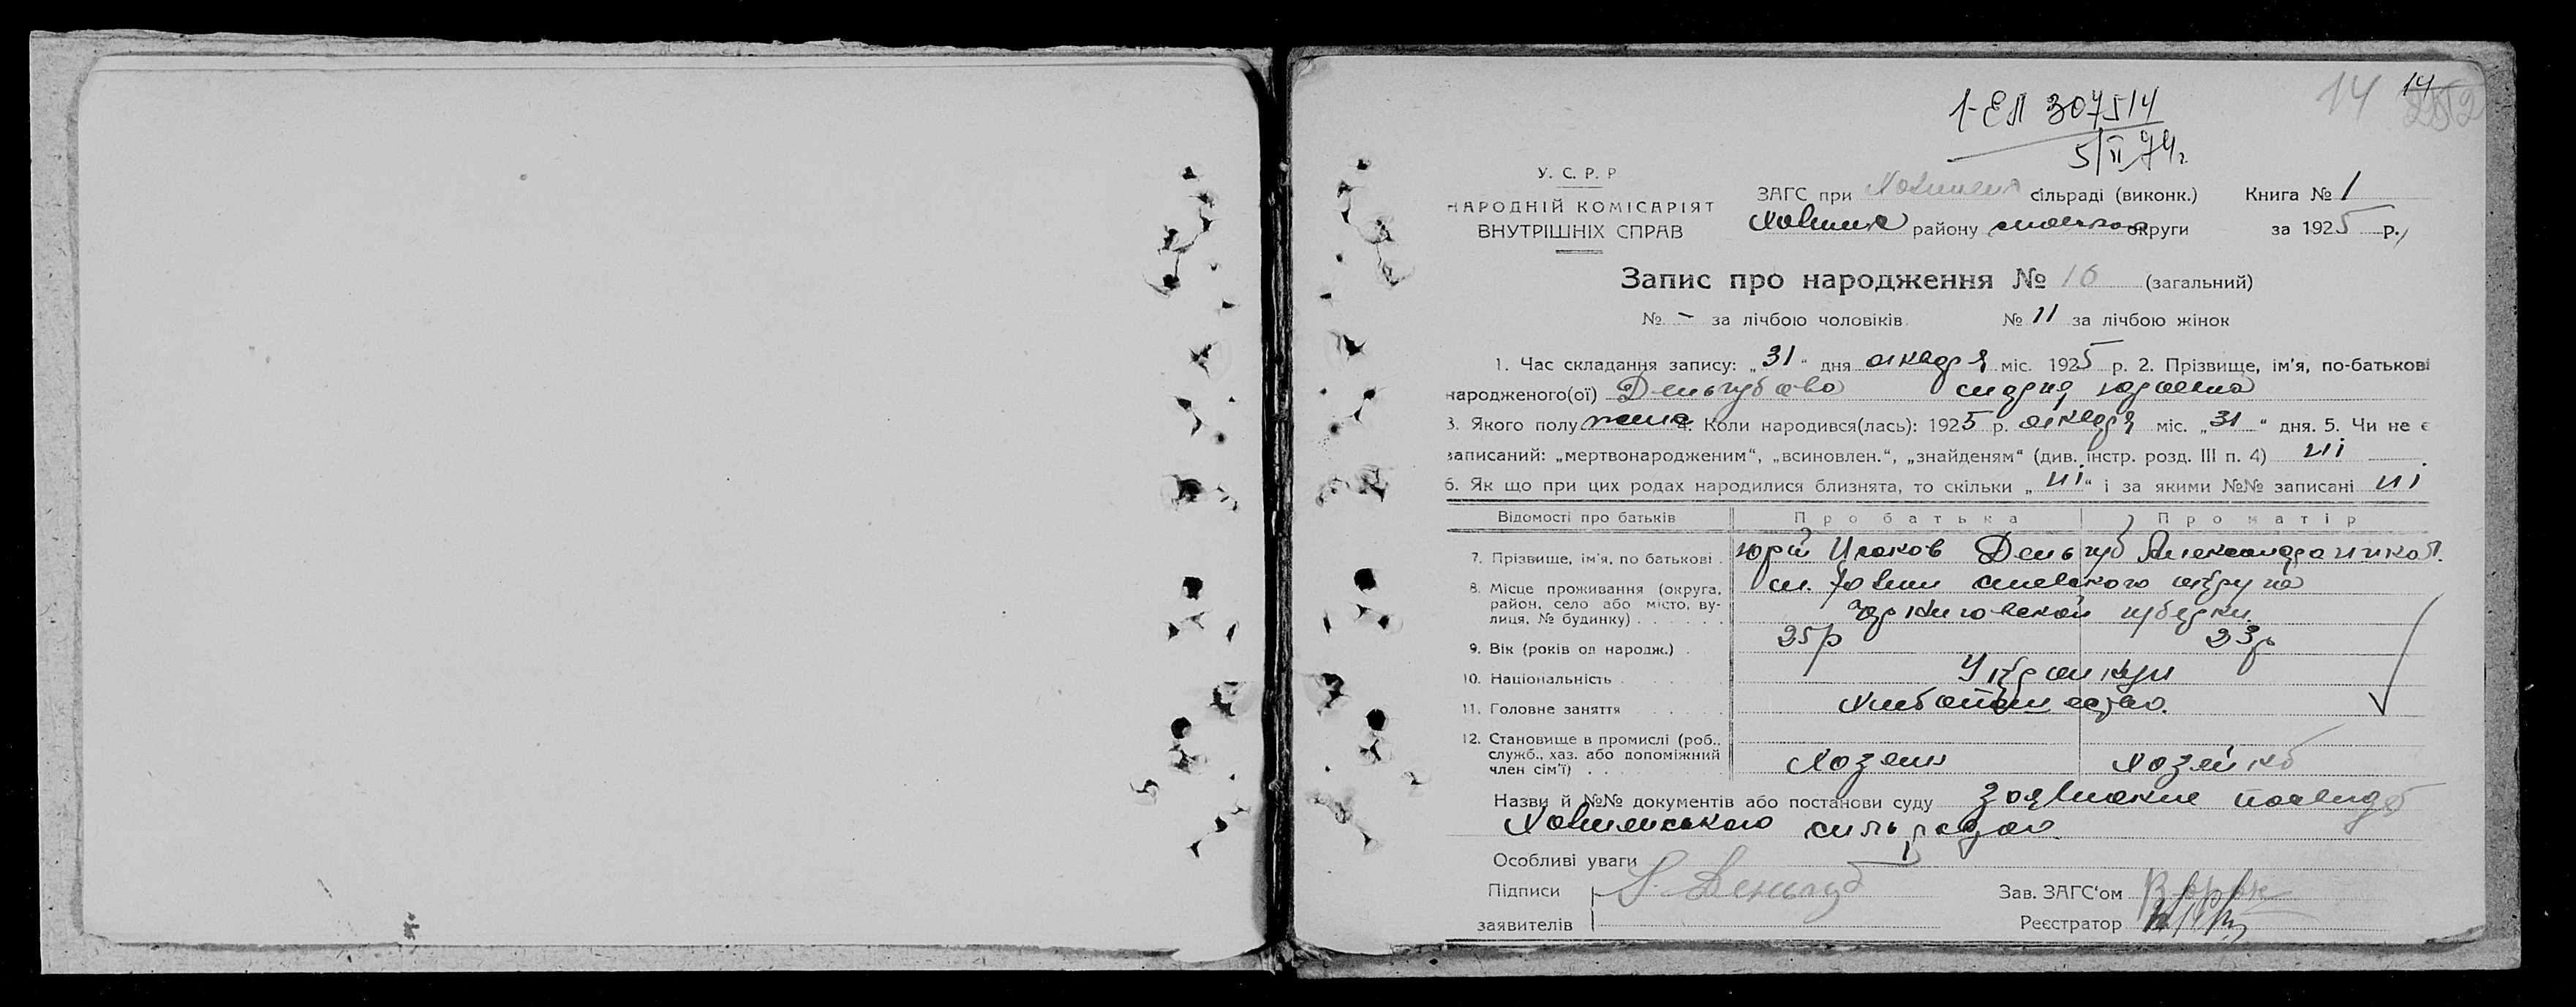 14 14
252
1-ЕЛ 307514
5/II 74г
У. С. Р. Р
НАРОДНІЙ КОМІСАРІЯТ
ВНУТРІШНІХ СПРАВ
ЗАГС при сільраді (виконк.) Книга № 1
району округи за 1925 р.
Запис про народження № 16 (загальний)
№ - за лічбою чоловіків. № 11 за лічбою жінок
1. Час складання запису: „31“ дня декабря міс. 1925 р. 2. Прізвище, ім'я, по-батькові
народженого(ої) Деньгубова Мария Юрьевна
3. Якого полу жене 4. Коли народився(лась): 1925 р. декабря міс. „31“ дня. 5. Чи не є
записаний: „мертвонародженим“, „всиновлен.“, „знайденям“ (див. інстр. розд. III п. 4) ні
6. Як що при цих родах народилися близнята, то скільки „ні“ і за якими №№ записані ні
Відомості про батьків Про батька Про матір
7. Прізвище, ім'я, по батькові . Юрій Исаков Деньгуб Александра Никол.
8. Місце проживання (округа, район, село або місто, вулиця, № будинку) . . . . . .
9. Вік (років од народж.) . 25р 23р
10. Національність . . . .
11. Головне заняття . . . . Хлебопашество.
12. Становище в промислі (роб., служб., хаз. або допоміжний член сім'ї) . . . Хозяин Хозяйка
Назви й №№ документів або постанови суду
сильрадою
Особливі уваги
Підписи Деньгуб Зав. ЗАГС'ом
заявителів Реєстратор